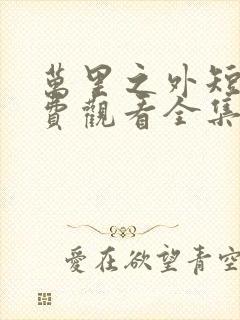 萬里之外短
費觀看全集
愛在欲望青空